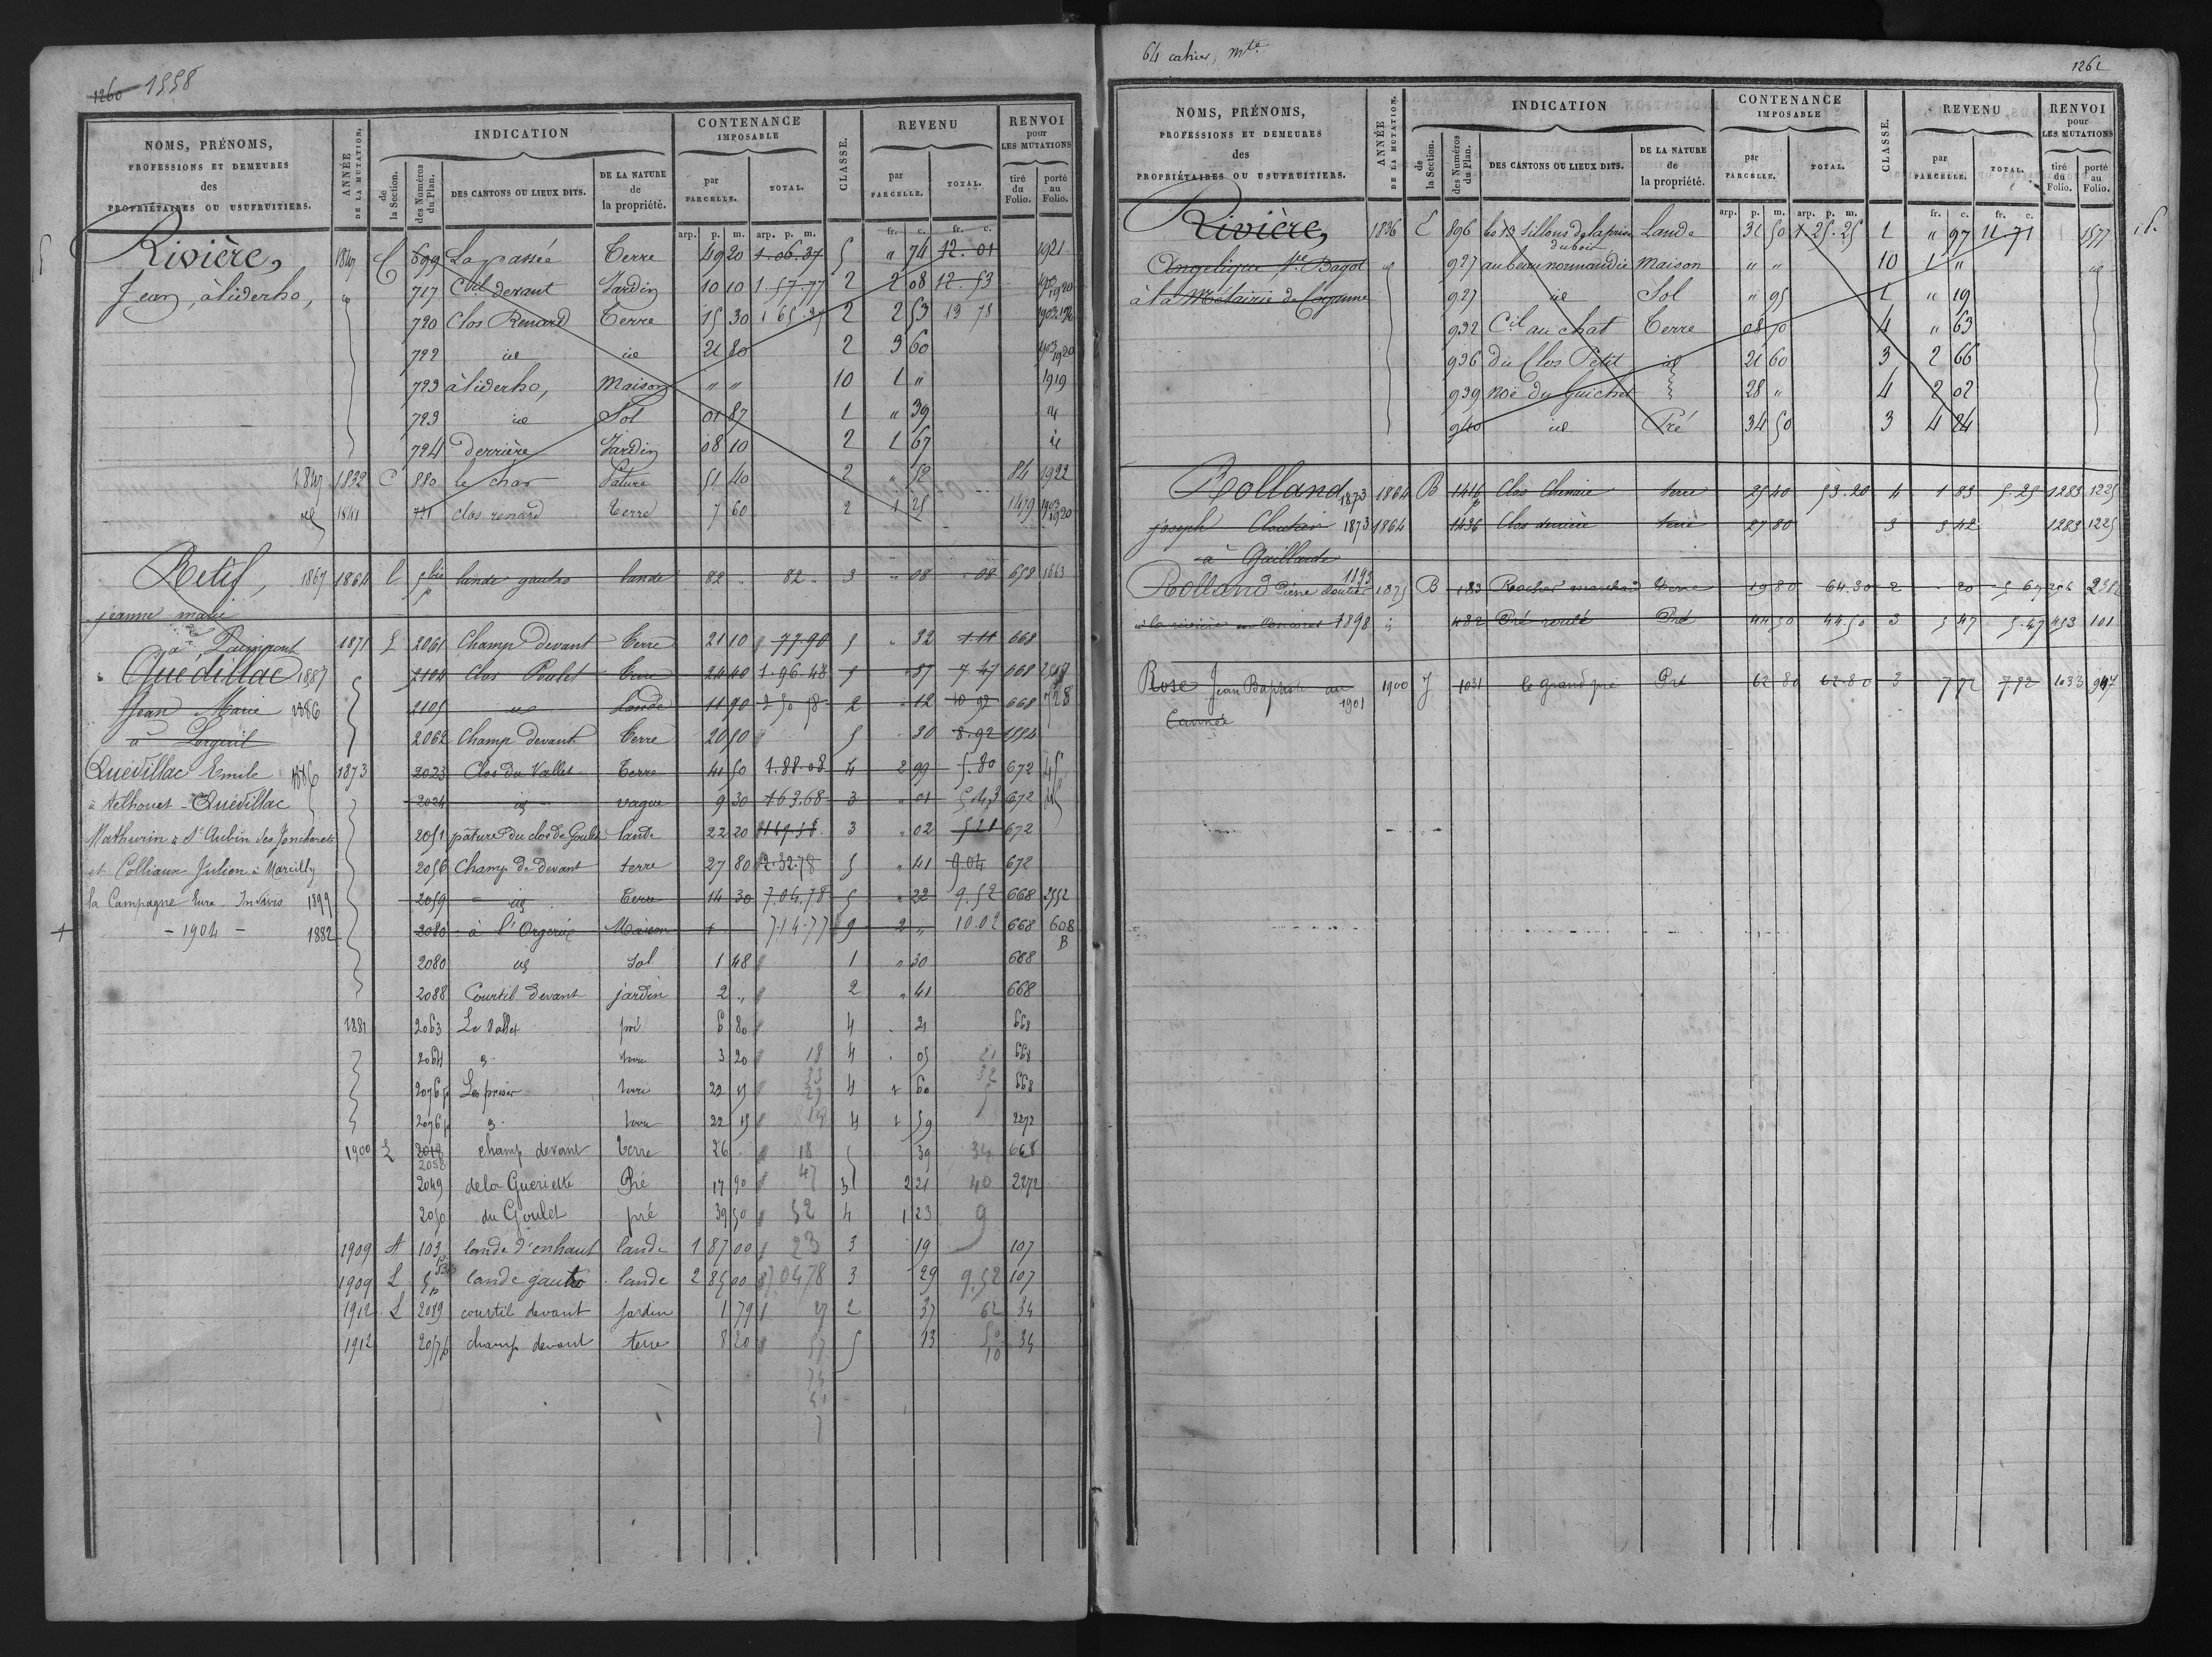 1260 1558
NOMS, PRÉNOMS, PROFESSIONS ET DEMEURES des PROPRIÉTAIRES OU USUFRUITIERS.
ANNÉE DE LA MUTATION.
INDICATION
de la Section.
des Numéros du Plan.
DES CANTONS OU LIEUX DITS.
DE LA NATURE de la propriété.
CONTENANCE IMPOSABLE
par PARCELLE.
TOTAL.
CLASSE.
REVENU
par PARCELLE.
TOTAL.
RENVOI pour LES MUTATIONS
tiré du Folio.
porté au Folio.
arp. p. m. arp. p. m. fr. c. fr. c.
Rivière, 1847 C 699 La passée Terre 49 20 1.06.37 5 " 74 12.01 1921
Jean, à liderho, id 717 Ctil devant Jardin 10 10 1.57.77 2 2 08 12.53 1920
720 Clos Renard Terre 15 30 1 65.37 2 2 53 13 78
722 id id 21 80 2 3 60 1920
723 à liderho, Maison " " 10 1 " 1919
723 id Sol 01 87 1 " 39 id
724 derrière Jardin 08 10 2 1 67 id
1847 1832 C 880 le char Pature 51 40 2 " 52 84 1922
id 1841 721 clos renard Terre 7 60 2 1 25 1479 1920
Retif, 1867 1864 L 5bis p lande gautro lande 82 " 82 " 3 " 08 " 08 659 1663
jeanne marie
à Paimpont 1871 L 2061 Champ devant Terre 21 10 77.90 5 " 32 1.11 668
Quedillac 1887 2104 Clos Poulet Terre 24 40 1.96.48 5 " 37 7.47 668
Jean Marie 1886 2105 id Lande 11 90 2 12 10 92 668 728
à Lorgeril 2062 Champ devant Terre 20 50 5 " 30 8.92 1554
Quédillac Emile 1873 2023 Clos du Vallet Terre 41 50 1.88.08 4 2 99 5.80 672
à telhouet - Quédillac 2024 id vague 9 30 1 63.68 3 " 01 5.43 672
Mathurin à St Aubin des Jonchorets 2051 pature du clos de Goulet lande 22 20 3 " 02 5 21 672
et Colliaux Julien à Marcilly 2056 Champ de devant terre 27 80 2.32.78 5 " 41 9.04 672
la Campagne Eure Indivis 1899 2059 id Terre 14 30 7.04.78 5 " 22 9.52 668 2552
- 1904 - 1882 2080 à l'Orgeril Maison 7.14.77 9 2 " 10.02 668 608 B
2080 id Sol 1 48 1 " 30 668
2088 Courtil devant jardin 2 " 2 " 41 668
1881 2063 Le Vallet pré 6 80 4 . 21 668
2064 terre 3 20 18 4 . 05 21 668
2076 p terre 22 15 4 1 60 668
2076 p terre 22 15 4 1 59 2272
1900 L 2018 2058 champ devant Terre 26 . 18 5 39 34 668
2049 de la Gueriette Pré 17 90 47 3 2 21 40 2272
2050 du Goulet pré 39 50 52 4 1 23 9
1909 A 103 lande d'enhaut lande 1 87 00 23 3 19 107
1909 L 5 bis p lande gautro lande 2 85 00 7.0478 3 29 9.52 107
1912 L 2089 courtil devant Jardin 1 79 27 2 37 62 34
1912 2057 p champ devant terre 8 20 57 5 13 50 34
10
64 cahier, mte
1261
NOMS, PRÉNOMS, PROFESSIONS ET DEMEURES des PROPRIÉTAIRES OU USUFRUITIERS.
ANNÉE DE LA MUTATION.
INDICATION
de la Section.
des Numéros du Plan.
DES CANTONS OU LIEUX DITS.
DE LA NATURE de la propriété.
CONTENANCE IMPOSABLE
par PARCELLE.
TOTAL.
CLASSE.
REVENU
par PARCELLE.
TOTAL.
RENVOI pour LES MUTATIONS
tiré du Folio.
porté au Folio.
arp. p. m. arp. p. m. fr. c. fr. c.
Rivière, 1836 E 896 les 13 Sillons de la prise du bois Lande 31 50 1 25.25 1 " 97 11 71 1577
Angelique Ve Bagot id 927 au beau normandie Maison " " 10 1 " id
à la Métairie de 927 id Sol " 95 1 " 19
932 Ctil au chat Terre 08 50 4 " 63
936 du Clos Petit id 21 60 3 2 66
939 Noë du Guichet 28 " 4 2 02
940 id Pré 34 50 3 4 24
Rolland 1873 1864 B 1416 p Clos Chenaie terre 25 40 53.20 4 1 83 5.25 1283 1225
joseph Cloutier 1873 1864 1436 Clos derrière terre 27 80 3 3 42 1283 1225
à Gaillarde
Rolland Pierre 1893 1875 B 183 Rocher marchand terre 19 80 64.30 2 . 20 5 67 206
à la rivière en Concoret 1898 id 482 Pré routé Pré 44 50 44.50 3 5 47 5.47 453 101
Rose Jean Baptiste au 1901 1900 J 1031 le grand pré Pré 62 80 62.80 3 7 72 7 72 1033 947
Cannée